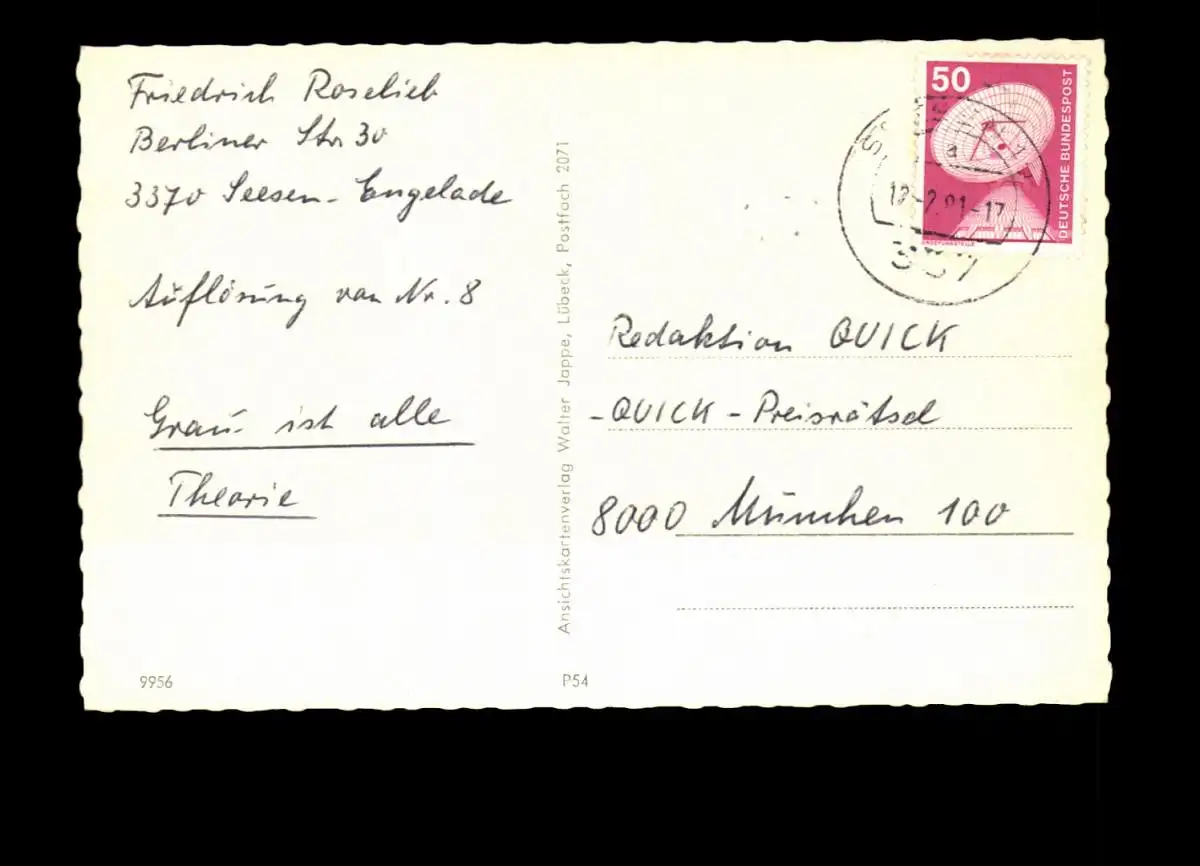 Friedrich Roselieb
Berliner Str. 30
3370 Seesen-Engelade
Auflösung von Nr. 8
Grau ist alle
Theorie
9956
Ansichtskartenverlag Walter Jappe, Lübeck, Postfach 2071
P54
50
DEUTSCHE BUNDESPOST
ERDEFUNKSTELLE
Redaktion QUICK
-QUICK-Preisrätsel
8000 München 100